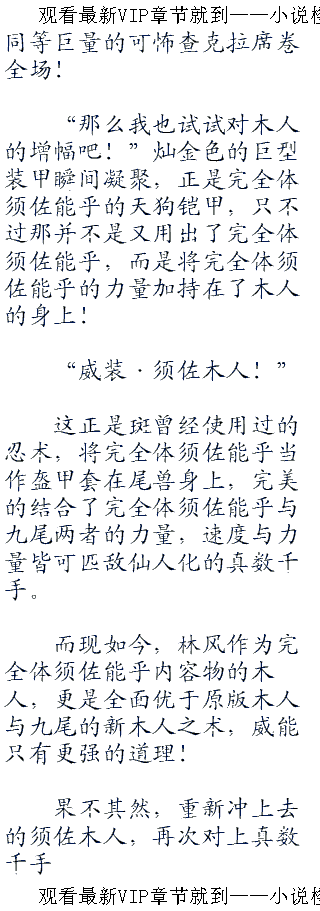 观看最新VIP章节就到——小说楼
同等巨量的可怖查克拉席卷
全场！
“那么我也试试对木人
的增幅吧！”灿金色的巨型
装甲瞬间凝聚，正是完全体
须佐能乎的天狗铠甲，只不
过那并不是又用出了完全体
须佐能乎，而是将完全体须
佐能乎的力量加持在了木人
的身上！
“威装·须佐木人！”
这正是斑曾经使用过的
忍术，将完全体须佐能乎当
作盔甲套在尾兽身上，完美
的结合了完全体须佐能乎与
九尾两者的力量，速度与力
量皆可匹敌仙人化的真数千
手。
而现如今，林风作为完
全体须佐能乎内容物的木
人，更是全面优于原版木人
与九尾的新木人之术，威能
只有更强的道理！
果不其然，重新冲上去
的须佐木人，再次对上真数
千手
观看最新VIP章节就到——小说楼